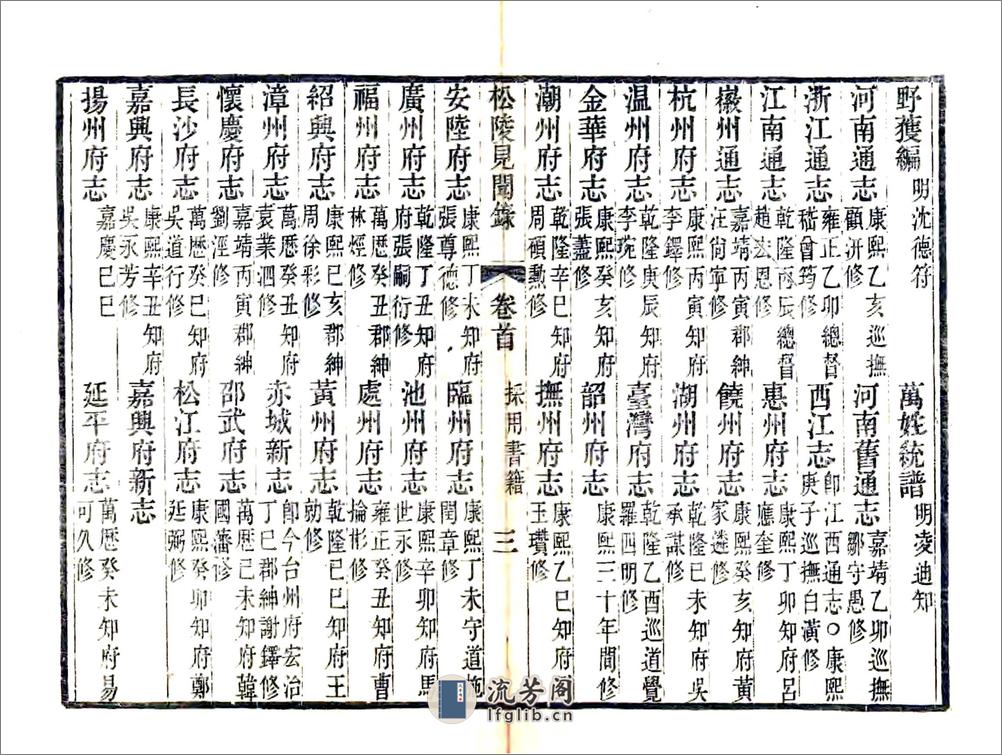 野獲編 明沈德符 萬姓統譜 明凌迪知
河南通志 康熙乙亥巡撫顧汧修 河南舊通志 嘉靖乙卯巡撫鄒守愚修
浙江通志 雍正乙卯總督嵇曾筠修 西江志 卽江西通志○康熙庚子巡撫白潢修
江南通志 乾隆丙辰總督趙宏恩修 惠州府志 康熙丁卯知府呂應奎修
徽州通志 嘉靖丙寅郡紳汪尙寧修 饒州府志 康熙癸亥知府黃家遴修
杭州府志 康熙丙寅知府李鐸修 湖州府志 乾隆己未知府吳承謀修
温州府志 乾隆庚辰知府李琬修 臺灣府志 乾隆乙酉巡道覺羅四明修
金華府志 康熙癸亥知府張藎修 韶州府志 康熙三十年間修
潮州府志 乾隆辛巳知府周碩勲修 撫州府志 康熙乙巳知府王瓚修
松陵見聞錄 卷首 採用書籍 三
安陸府志 康熙丁未知府張尊德修 臨州府志 康熙丁未守道施閏章修
廣州府志 乾隆丁丑知府張嗣衍修 池州府志 康熙辛卯知府馬世永修
福州府志 萬歷癸丑郡紳林烴修 處州府志 雍正癸丑知府曹掄彬修
紹興府志 康熙己亥郡紳周徐彩修 黃州府志 乾隆己巳知府王勍修
漳州府志 萬歷癸丑知府袁業泗修 赤城新志 卽今台州府宏治丁巳郡紳謝鐸修
懷慶府志 嘉靖丙寅郡紳劉涇修 邵武府志 萬歷己未知府韓國藩修
長沙府志 萬歷癸巳知府吳道行修 松江府志 康熙癸卯知府鄭延弼修
嘉興府志 康熙辛丑知府吳永芳修 嘉興府新志
揚州府志 嘉慶己巳 延平府志 萬歷癸未知府易可久修
流芳阁
lfglib.cn